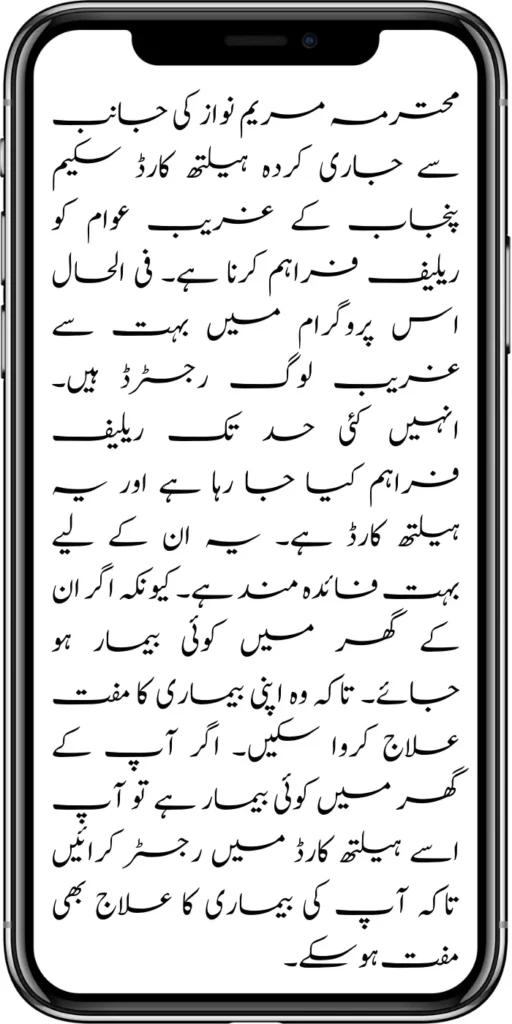 محترمہ مریم نواز کی جانب
سے جاری کردہ ہیلتھ کارڈ سکیم
پنجاب کے غریب عوام کو
ریلیف فراہم کرنا ہے۔ فی الحال
اس پروگرام میں بہت سے
غریب لوگ رجسٹرڈ ہیں۔
انہیں کئی حد تک ریلیف
فراہم کیا جا رہا ہے اور یہ
ہیلتھ کارڈ ہے۔ یہ ان کے لیے
بہت فائدہ مند ہے۔ کیونکہ اگر ان
کے گھر میں کوئی بیمار ہو
جائے۔ تاکہ وہ اپنی بیماری کا مفت
علاج کروا سکیں۔ اگر آپ کے
گھر میں کوئی بیمار ہے تو آپ
اسے ہیلتھ کارڈ میں رجسٹر کرائیں
تاکہ آپ کی بیماری کا علاج بھی
مفت ہو سکے۔